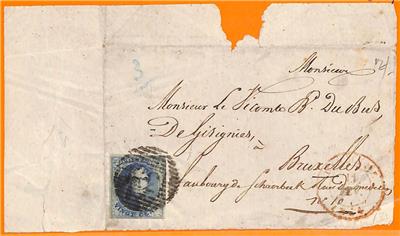 Monsieur
Monsieur Le Vicomte Bd. Du Bus,
De Gisignies,
à
Bruxelles
faubourg de Schaerbeek Rue
n° 10